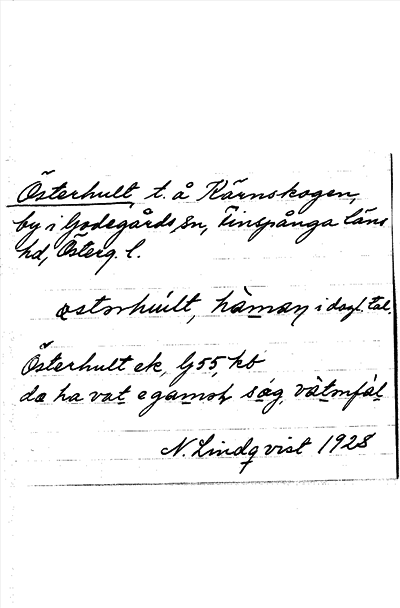 Österhult, t. å Kärnskogen,
by i Godegårds sn, Finspånga läns
hd, Österg. l.
østərhúlt, hàmaɲ i dagl. tal.
Österhult ek, G 55, kb
da ha vat e gaməl såg, vàtnfàl
N. Lindqvist 1928